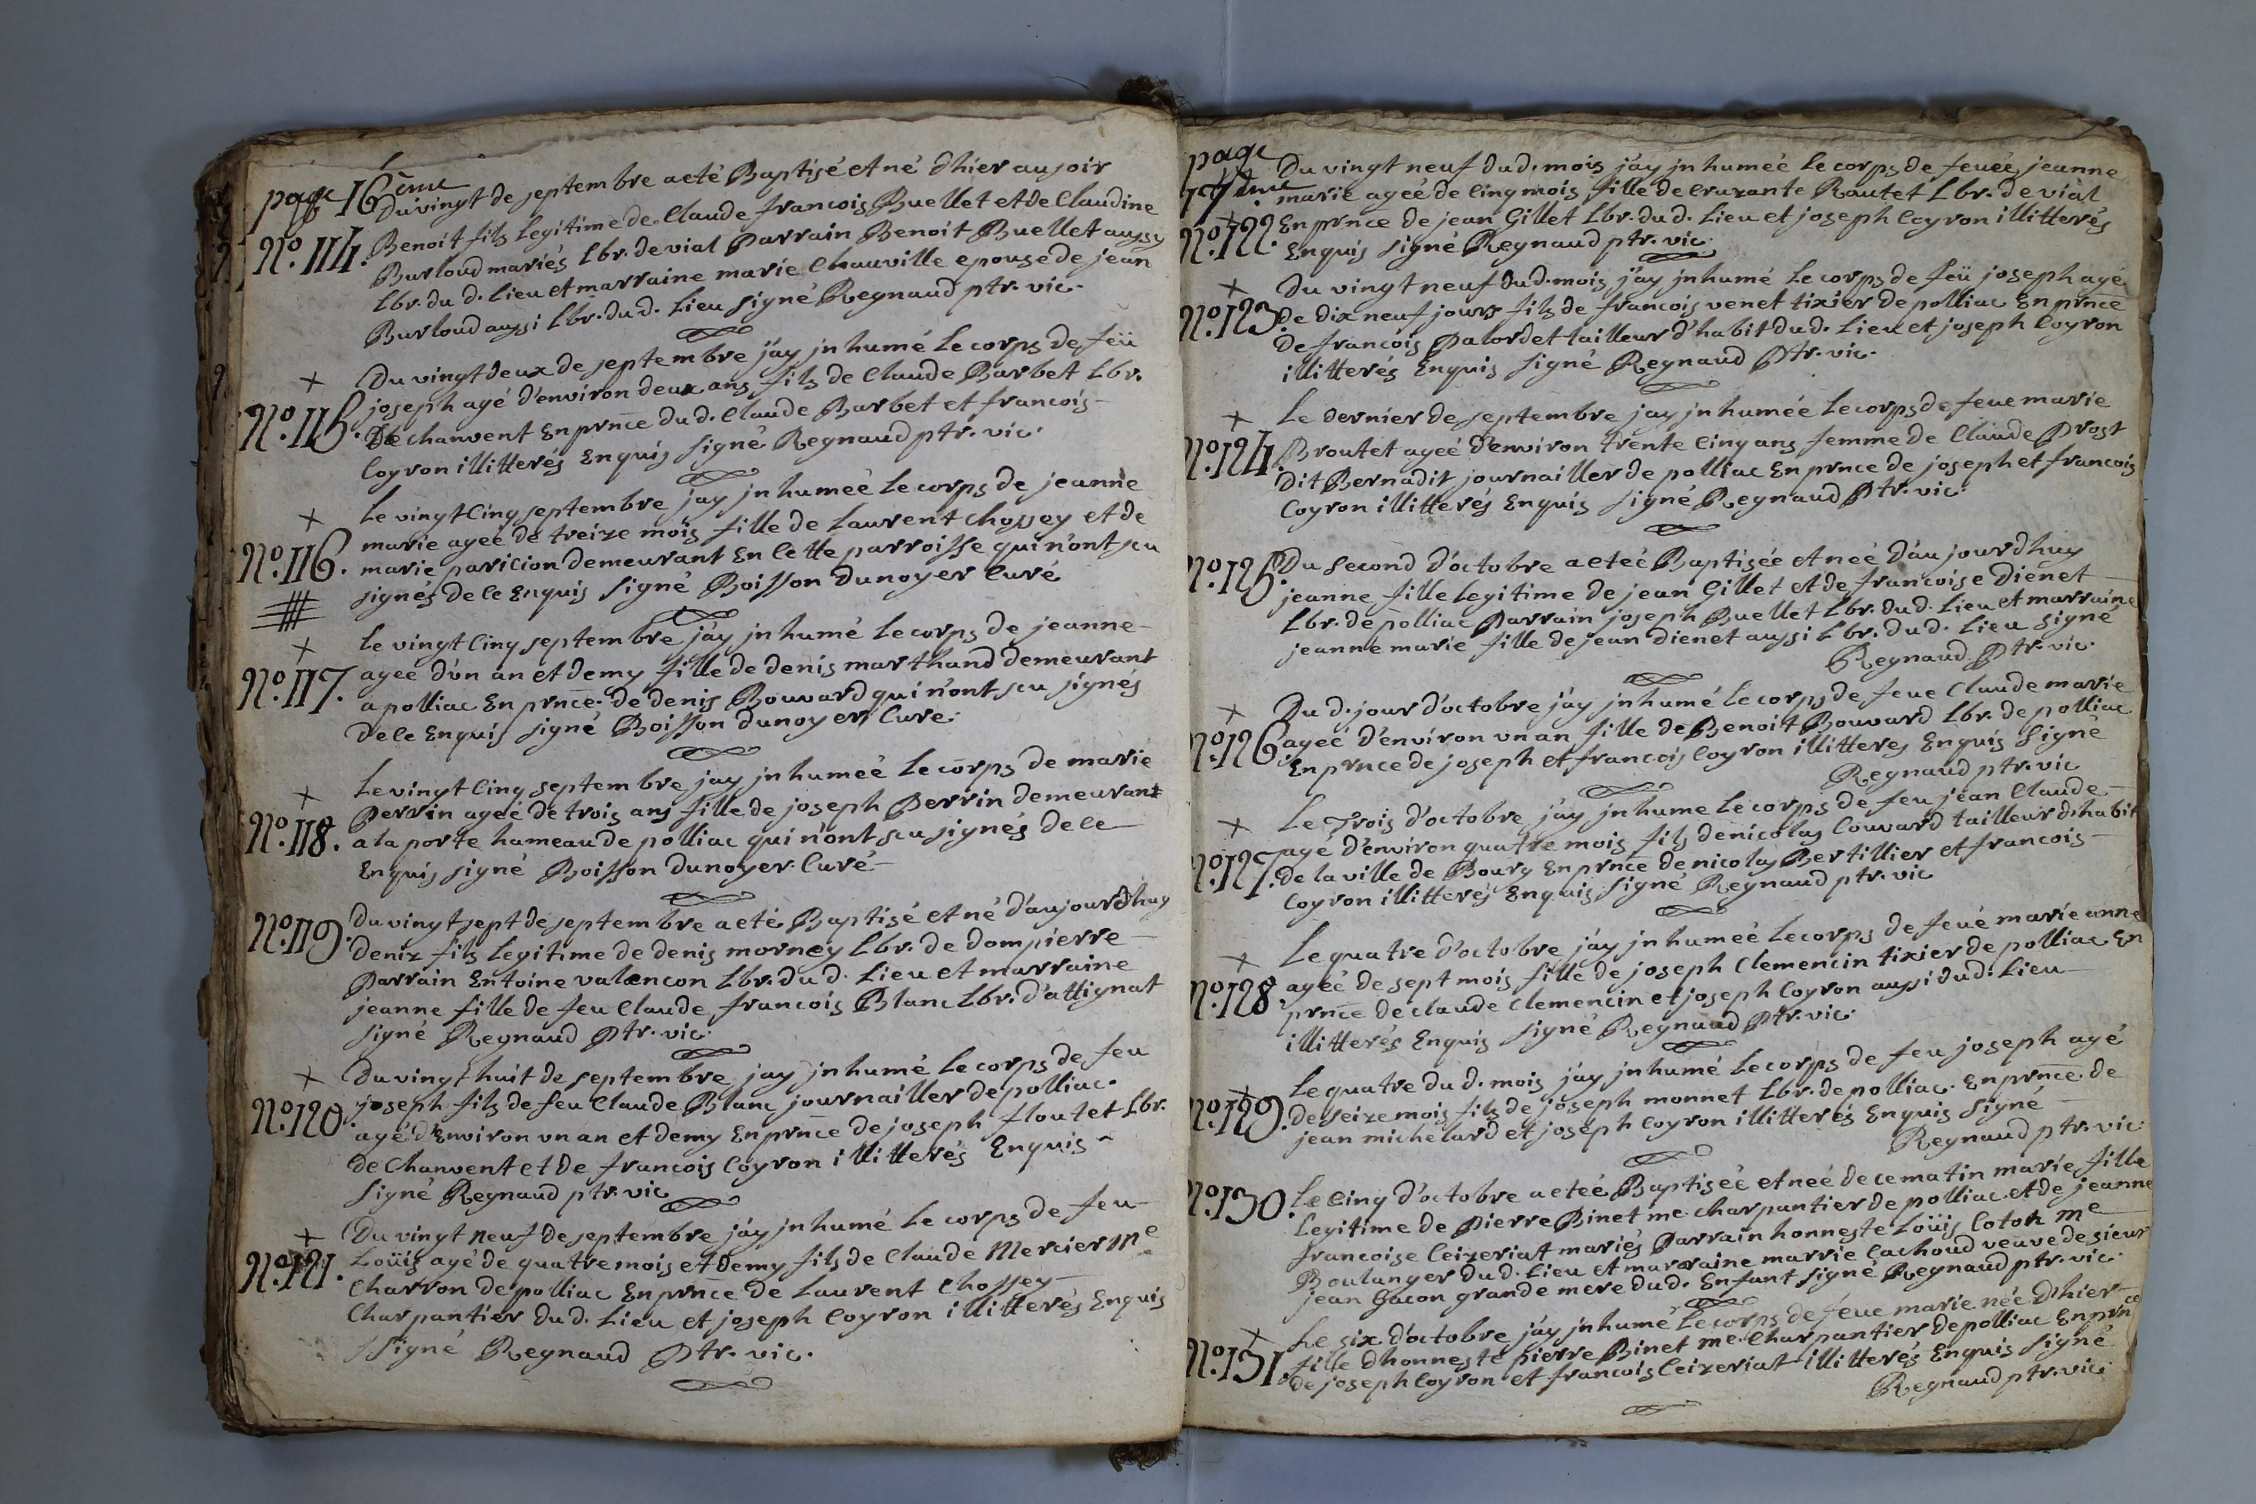 page 16ème
Du vingt de septembre a eté Baptisé et né d'hier au soir
No. 114. Benoit fils legitime de Claude francois Buellet et de Claudine
Burloud mariés lbr. de vial Parrain Benoit Buellet aussy
lbr. du d. lieu et marraine marie Chauville epouse de jean
Burloud aussi lbr. du d. lieu signé Regnaud ptr. vic.
Du vingt deux de septembre j'ay jnhumé le corps de feü
No. 115. joseph agé d'environ deux ans fils de Claude Barbet lbr.
De chanvent En prnce du d. Claude Barbet et francois
Coyron illitterés Enquis signé Regnaud ptr. vic.
Le vingt Cinq septembre jay jnhumeé le corps de jeanne
No. 116. marie ageé de treize mois fille de laurent Chossey et de
marie paricion demeurant En Cette parroisse qui n'ont scu
signés de ce Enquis signé Boisson Dunoyer Curé
Le vingt Cinq septembre j'ay jnhumé le corps de jeanne
No. 117. ageé d'un an et demy fille de denis marthand demeurant
a polliac En prnce de denis Bouvard qui n'ont scu signes
de ce Enquis signé Boisson Dunoyer Cure.
Le vingt Cinq septembre jay jnhumeé le corps de marie
No. 118. Perrin ageé de trois ans fille de joseph Perrin demeurant
a la porte hameau de polliac qui n'ont scu signés de ce
Enquis signé Boisson Dunoyer Curé
No. 119. Du vingt sept de septembre a eté Baptisé et né d'aujourdhuy
deniz fils legitime de denis morney lbr. de dompierre
Parrain Entoine valencon lbr. du d. lieu et marraine
jeanne fille de feu Claude francois Blanc lbr. d'attignat
signé Regnaud Ptr. vic.
Du vingt huit de septembre jay jnhumé le corps de feu
No. 120. joseph fils de feu Claude Blanc journaillier de polliac.
agé d'Environ vn an et demy En prnce de joseph floutet lbr.
de Chanvent et de francois Coyron illitterés Enquis
signé Regnaud ptr. vic
Du vingt neuf de septembre j'ay jnhumé le corps de feu
No. 121. Loüis agé de quatre mois et demy fils de Claude Mercier me
Charron de polliac En prnce de Laurent Chossey
Charpantier du d. lieu et joseph Coyron illitterés Enquis
signé Regnaud Ptr. vic.
page 17ème
Du vingt neuf du d. mois j'ay jnhumeé le corps de feueé jeanne
marie ageé de Cinq mois fille de Cruxante Rautet lbr. de vial
No. 122. En prnce de jean Gillet lbr. du d. lieu et joseph Coyron illitterés
Enquis signé Regnaud ptr. vic.
Du vingt neuf du d. mois j'ay jnhumé le corps de feü joseph agé
No. 123. de dix neuf jours fils de francois venet tixier de polliac En prnce
de francois Palordet tailleur d'habit du d. lieu et joseph Coyron
illitterés Enquis signé Regnaud Ptr. vic.
Le dernier de septembre jay jnhumeé le corps de feue marie
No. 124. Broutet ageé d'environ trente Cinq ans femme de Claude Prost
dit Bernadit journaillier de polliac En prnce de joseph et francois
Coyron illitterés Enquis signé Regnaud Ptr. vic.
No. 125. Du second d'octobre a eteé Baptisée et neé d'aujourdhuy
jeanne fille legitime de jean Gillet et de francoise Diénet
lbr. de polliac Parrain joseph Buellet lbr. du d. lieu et marraine
jeanne marie fille de jean dienet aussi lbr. du d. lieu signé
Regnaud Ptr. vic.
Du d. jour d'octobre j'ay jnhumé le corps de feue Claude marie
No. 126. ageé d'environ vn an fille de Benoit Bouvard lbr. de polliac
En prnce de joseph et francois Coyron illitteres Enquis signé
Regnaud ptr. vic
Le trois d'octobre j'ay jnhumé le corps de feu jean Claude
No. 127. agé d'environ quatre mois fils de nicolas Couvard tailleur d'habit
de la ville de Bourg En prnce de nicolas Bertillier et francois
Coyron illitterés Enquis signé Regnaud ptr. vic
Le quatre d'octobre j'ay jnhumeé le corps de feué marie anne
No. 128. ageé de sept mois fille de joseph Clemencin tixier de polliac En
prnce de Claude Clemencin et joseph Coyron aussi du d. lieu
illitterés Enquis signé Regnaud Ptr. vic.
Le quatre du d. mois j'ay jnhumé le corps de feu joseph agé
No. 129. de seize mois fils de joseph monnet lbr. de polliac. En prnce. de
jean michelard et joseph Coyron illitterés Enquis signé
Regnaud ptr. vic.
No. 130. Le Cinq d'octobre a eteé Baptiseé et neé de ce matin marie fille
legitime de Pierre Binet me charpantier de polliac et de jeanne
francoise Ceizeriat mariés Parrain honneste Loüis Coton me
Boulanger du d. lieu et marraine marrie Cachoud veuve de sieur
jean Gacon grande mere du d. Enfant signé Regnaud ptr. vic.
Le six d'octobre j'ay jnhumé le corps de feue marie née d'hier
No. 131. fille d'honneste pierre Binet me Charpantier de polliac En prnce
de joseph Coyron et francois Ceizeriat illitterés Enquis signé
Regnaud ptr. vic.